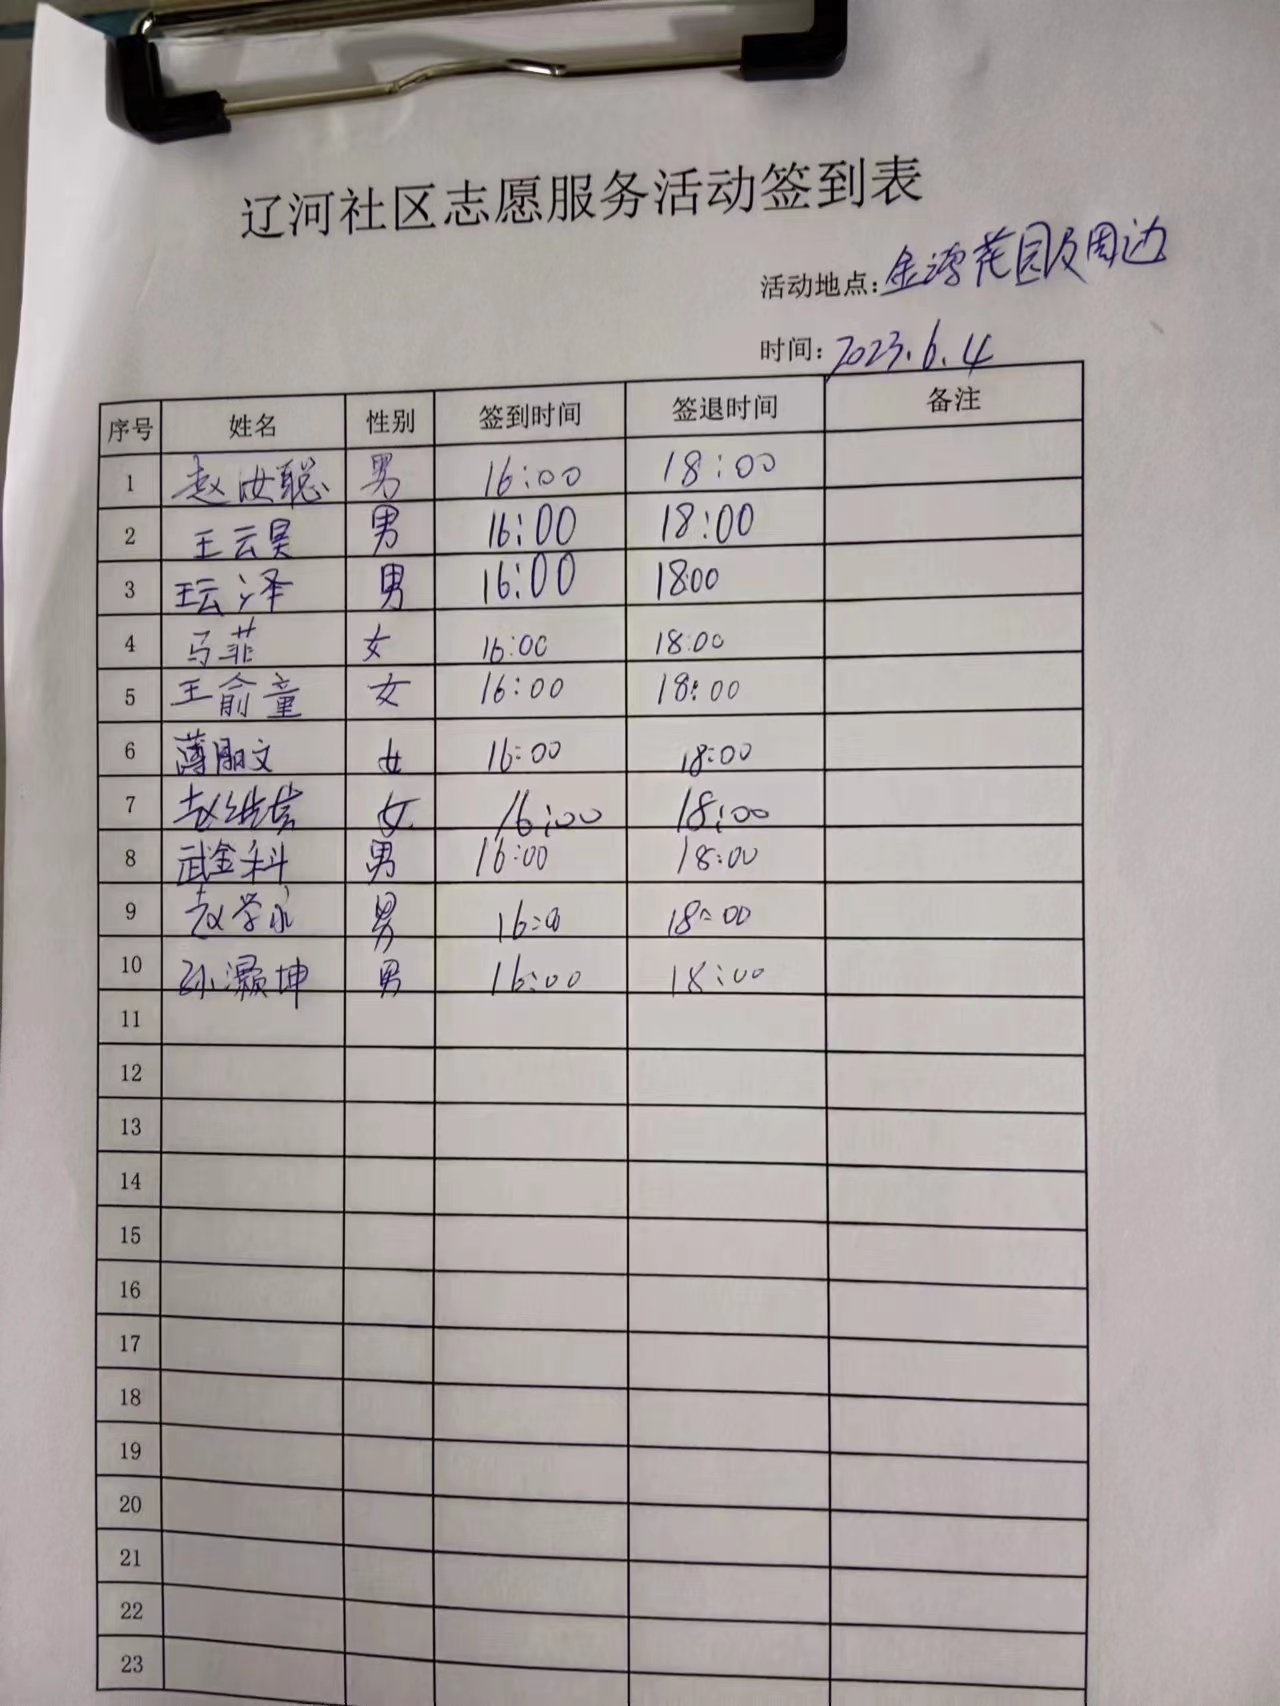 辽河社区志愿服务活动签到表
活动地点:金源花园及周边
时间:2023.6.4
序号 姓名 性别 签到时间 签退时间 备注
1 赵汝聪 男 16:00 18:00
2 王云昊 男 16:00 18:00
3 王云泽 男 16:00 1800
4 马菲 女 16:00 18:00
5 王俞童 女 16:00 18:00
6 薄丽文 女 16:00 18:00
7 女 16:00 18:00
8 武金科 男 16:00 18:00
9 赵学永 男 16:0 18:00
10 孙灏坤 男 16:00 18:00
11
12
13
14
15
16
17
18
19
20
21
22
23